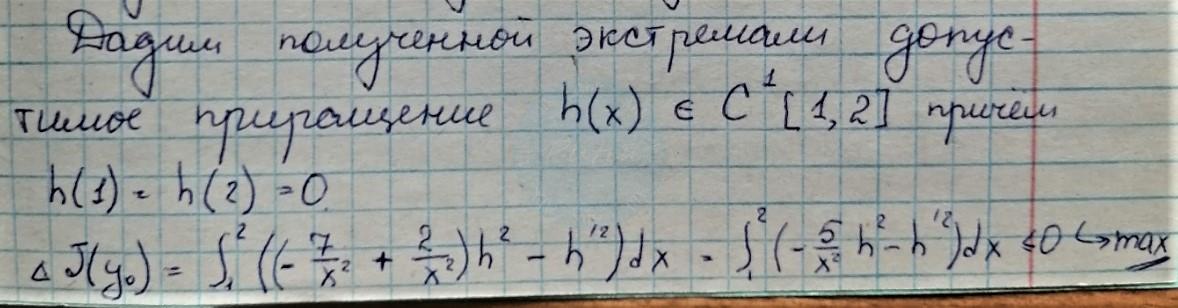 Дадим полученной экстремали допус-
тимое приращение h(x) ∈ C¹[1,2] причём
h(1) = h(2) = 0
Δ J(y₀) = ∫₁² ((-7/x² + 2/x²)h² - h'²)dx = ∫₁² (-5/x² h² - h'²)dx ≤0 ↪max